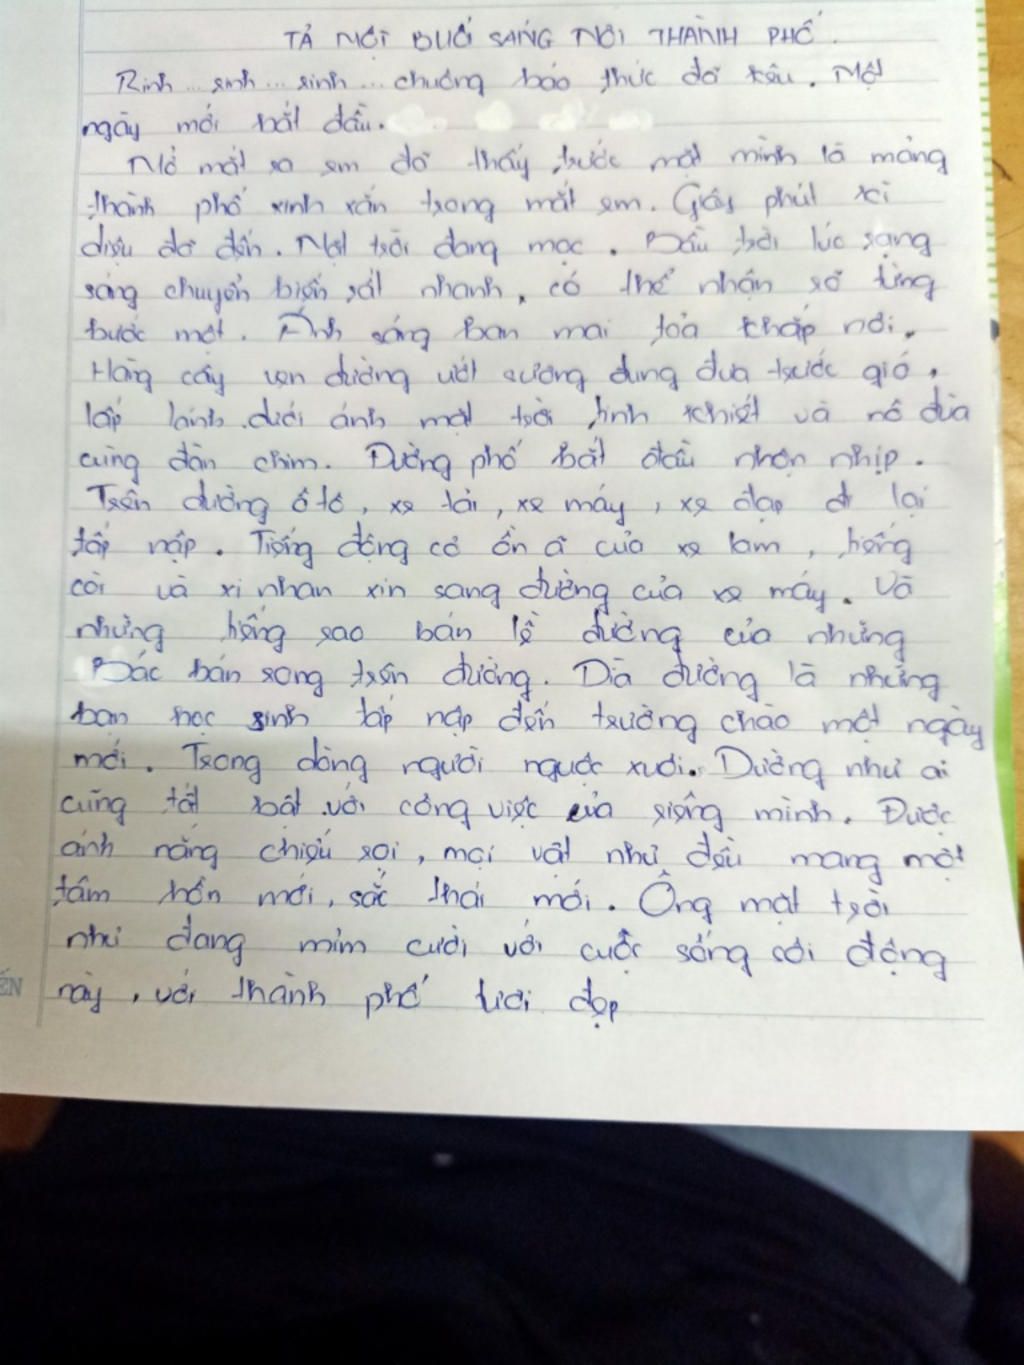 TẢ MỘT BUỔI SÁNG NƠI THÀNH PHỐ.
Rinh... rinh... rinh... chuông báo thức đã kêu. Một
ngày mới bắt đầu.
Mở mắt ra em đã thấy trước mặt mình là mảng
thành phố xinh xắn trong mắt em. Giây phút kì
diệu đã đến. Mặt trời đang mọc. Bầu trời lúc rạng
sáng chuyển biến rất nhanh, có thể nhận rõ từng
bước một. Ánh sáng ban mai tỏa khắp nơi.
Hàng cây ven đường ướt sương đung đưa trước gió,
lấp lánh dưới ánh mặt trời tinh khiết và nô đùa
cùng đàn chim. Đường phố bắt đầu nhộn nhịp.
Trên đường ô tô, xe tải, xe máy, xe đạp đi lại
tấp nập. Tiếng động cơ ồn ã của xe lam, tiếng
còi và xi nhan xin sang đường của xe máy. Và
những tiếng rao bán lề đường của những
Bác bán rong trên đường. Dìa đường là những
bạn học sinh tấp nập đến trường chào một ngày
mới. Trong dòng người ngược xuôi. Dường như ai
cũng tất bật với công việc của riêng mình. Được
ánh nắng chiếu rọi, mọi vật như đều mang một
tâm hồn mới, sắc thái mới. Ông mặt trời
như đang mỉm cười với cuộc sống sôi động
này, với thành phố tươi đẹp